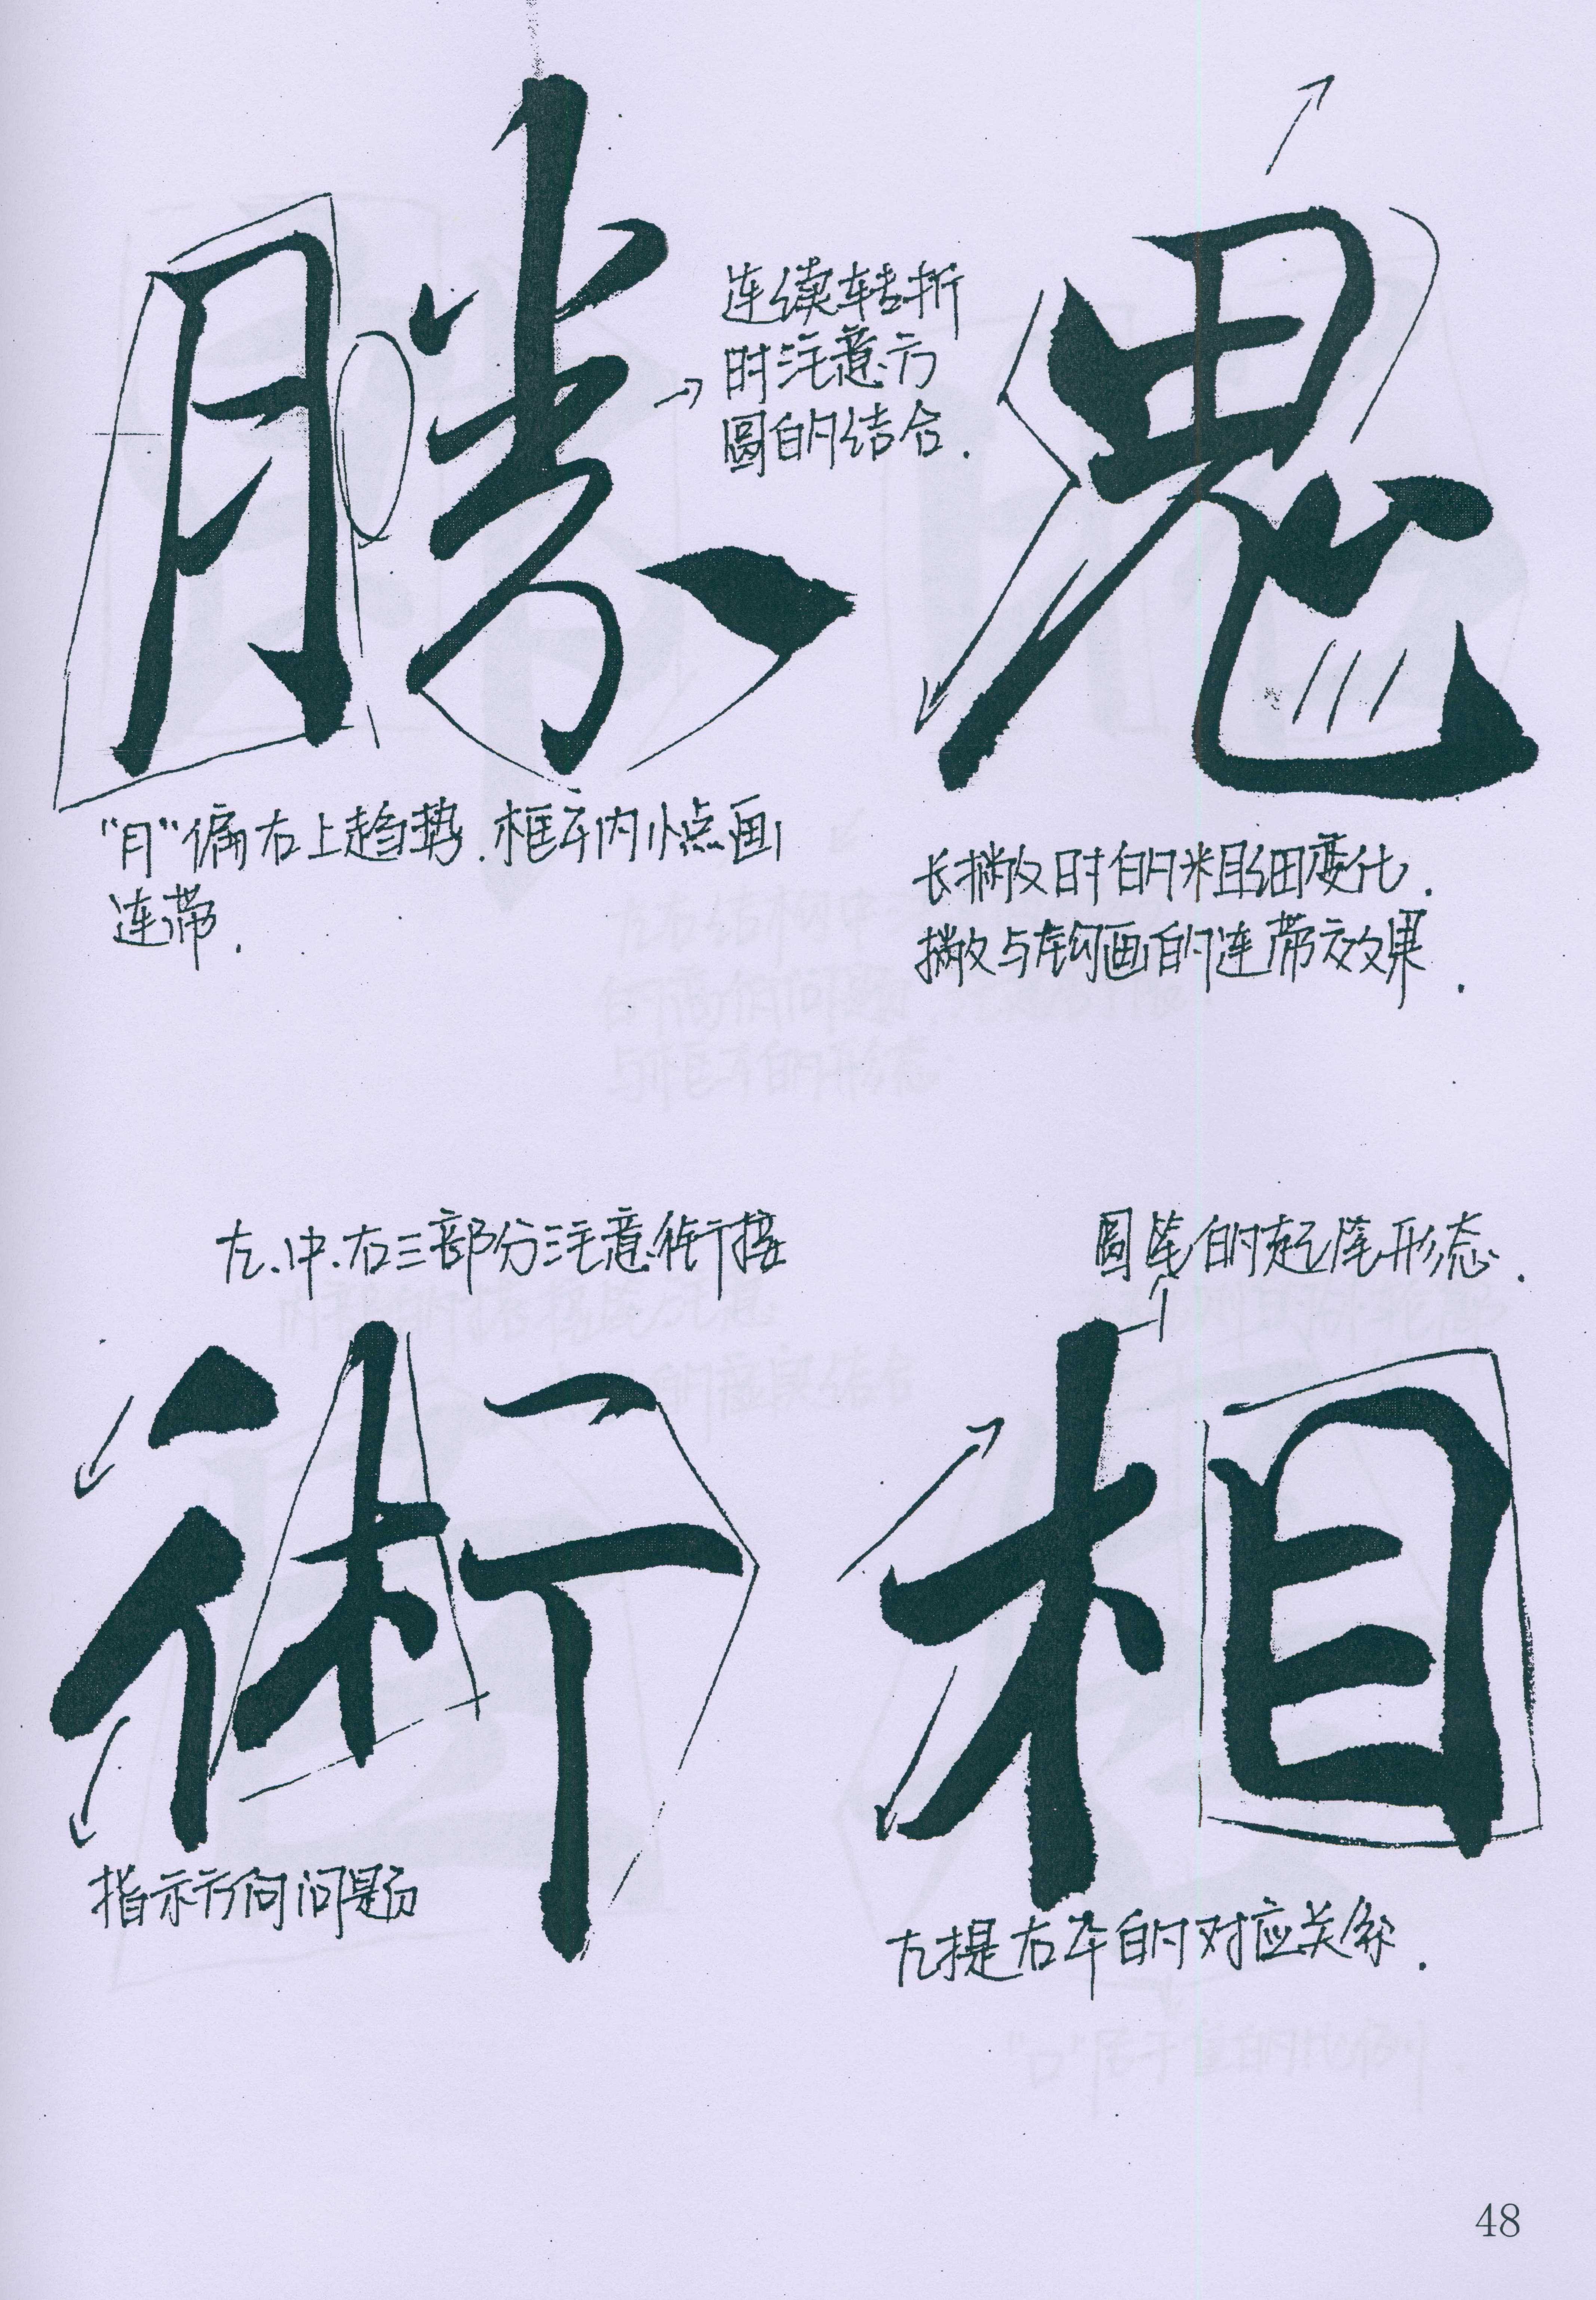 勝
连续转折
时注意方
圆的结合.
鬼
"月"偏右上趋势.框子内小点画
连带.
长撇时的粗细变化.
撇与钩画的连带效果.
左.中.右三部分注意衔接
圆笔的起笔形态.
術
相
指示方向问题
左提右牵的对应关系.
48